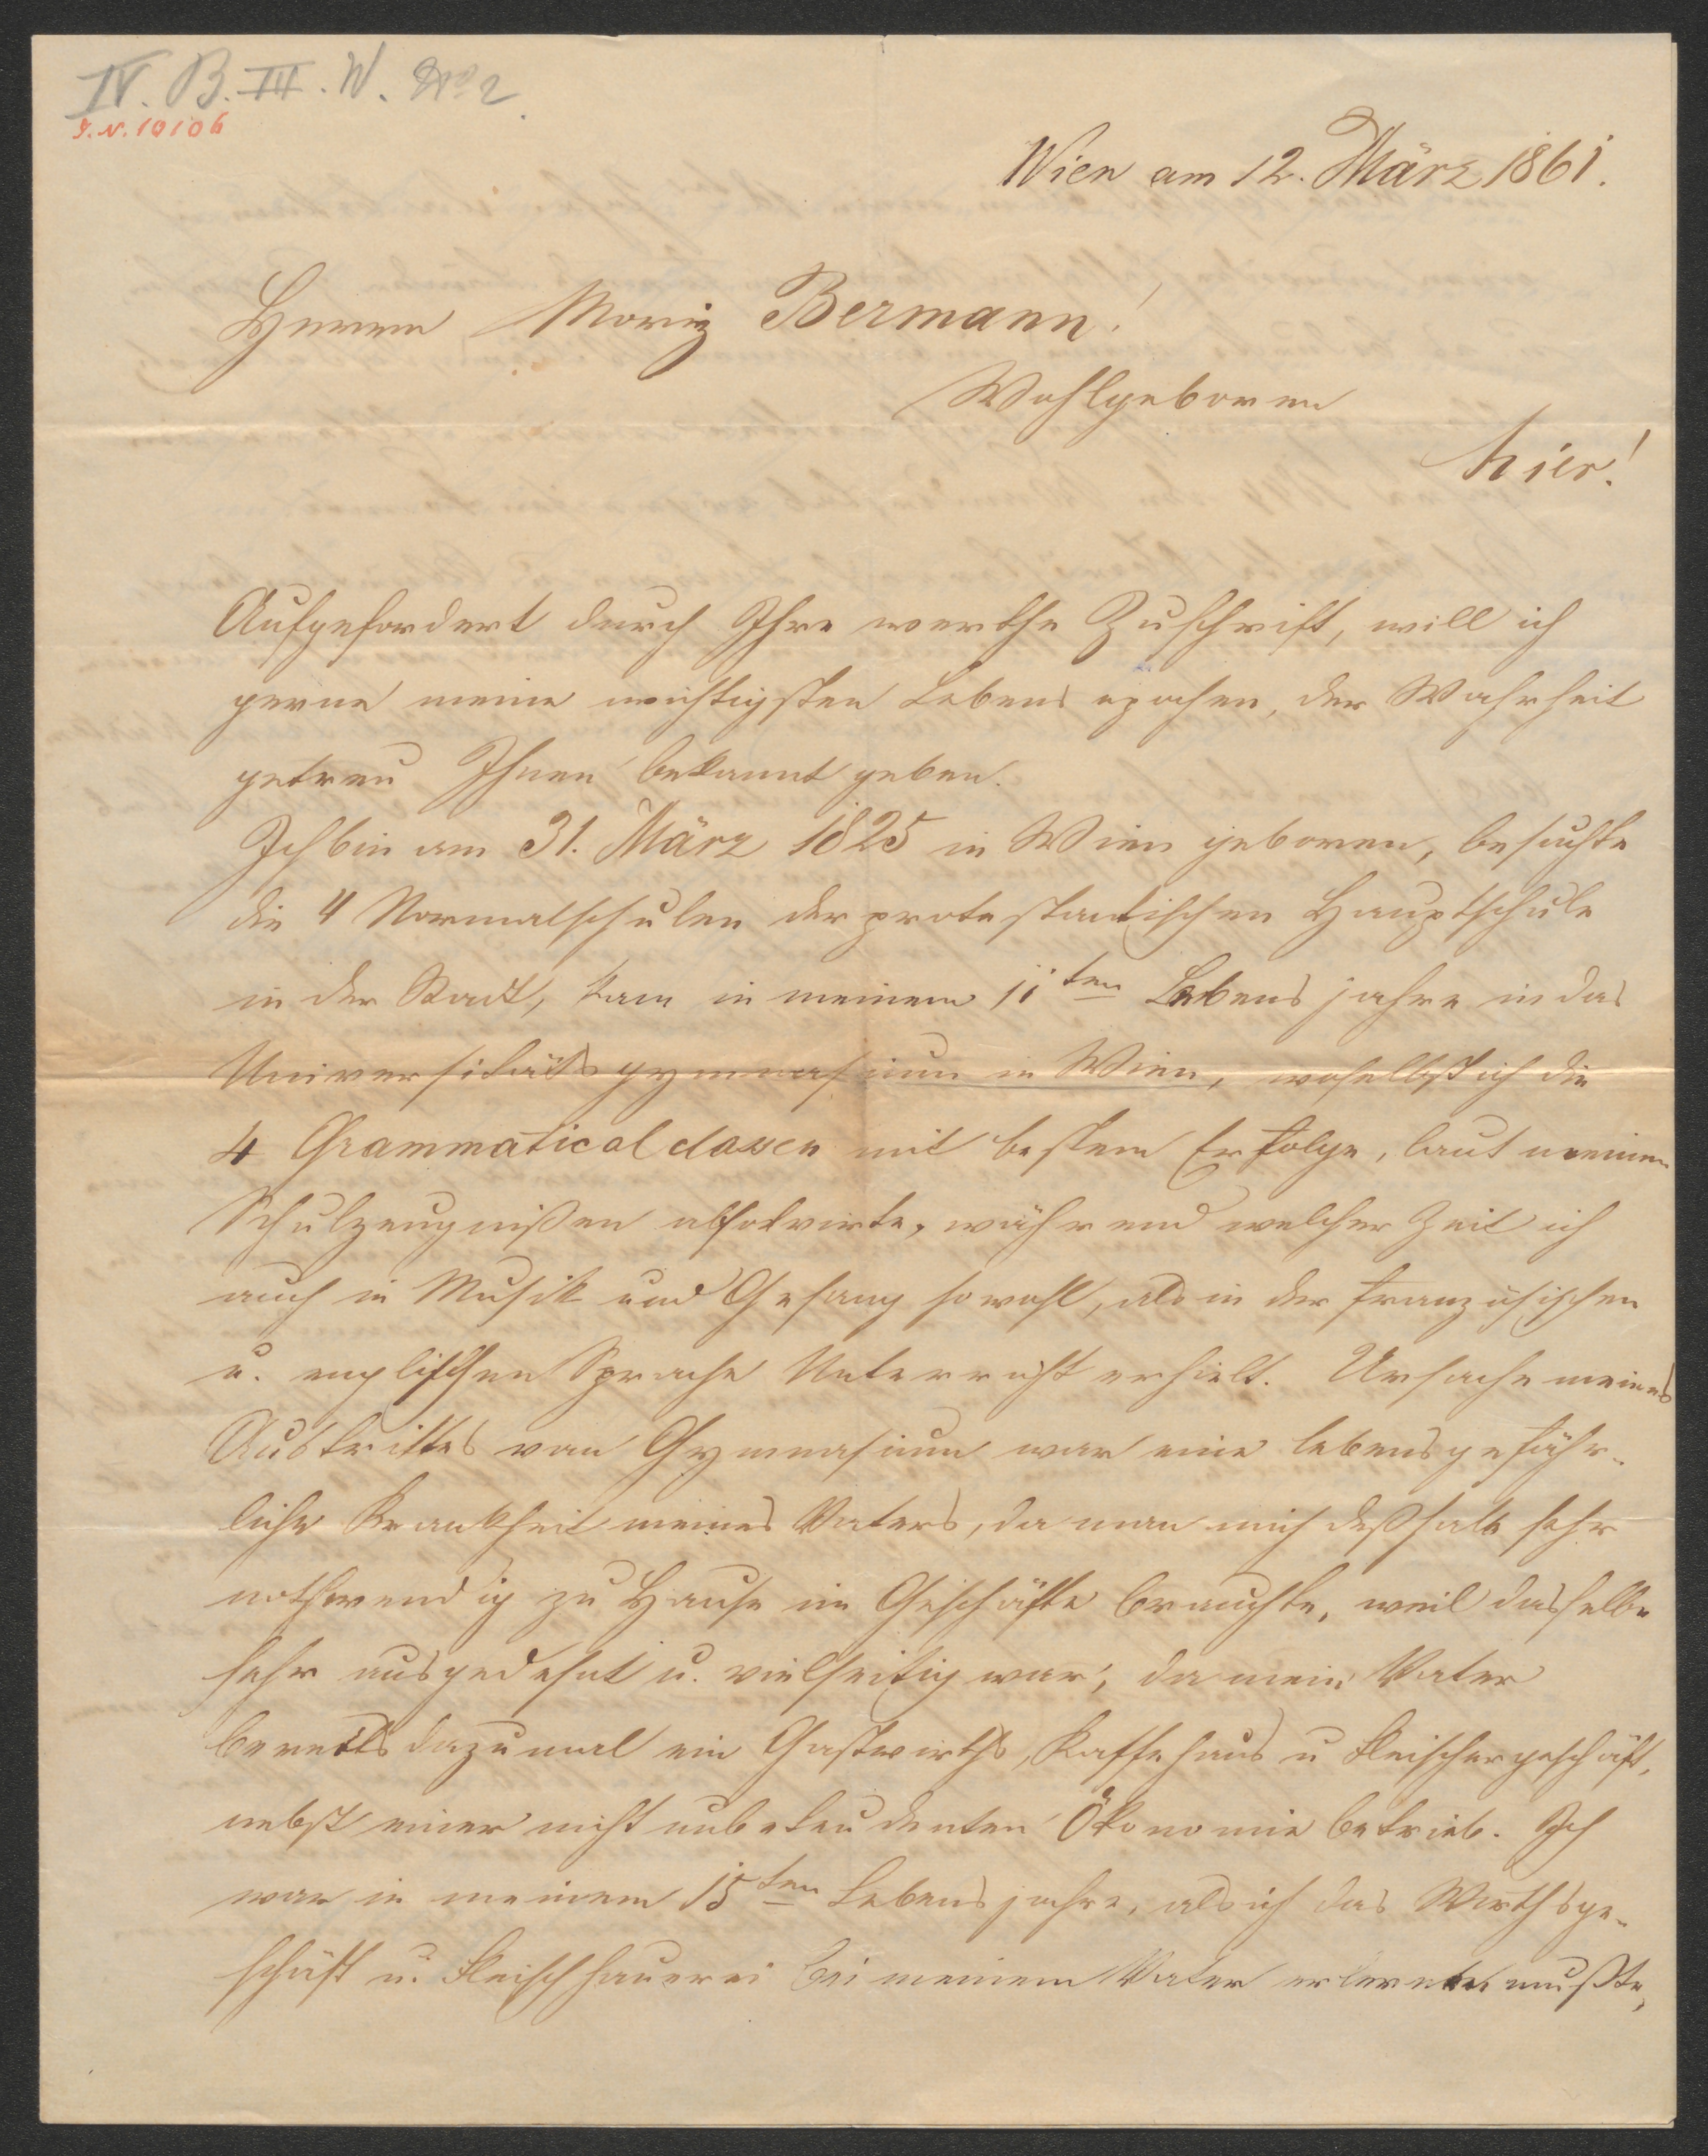 IV. B. III. W. No 2
I.N. 10106
Wien am 12. März 1861.
Herrn Moriz Bermann!
Wohlgeboren
hier!
Aufgefordert durch Ihre werthe Zuschrift, will ich
gerne meine wichtigsten Lebens epochen, der Wahrheit
getreu Ihnen bekannt geben.
Ich bin am 31. März 1825 in Wien geboren, besuchte
die 4 Normalschulen der protestantischen Hauptschule
in der Stadt, kam in meinem 11ten Lebensjahre in das
Universitäts gymnasium in Wien, woselbst ich die
4 Grammaticalclassen mit bestem Erfolge, laut meinen
Schulzeugnißen absolvirte, während welcher Zeit ich
auch in Musik und Gesang sowohl, als in der französischen
u. englischen Sprache Unterricht erhielt. Ursache meines
Austrittes vom Gymnasium war eine lebensgefähr-
liche Krankheit meines Vaters, da man mich deßhalb sehr
nothwendig zu Hause im Geschäfte brauchte, weil dasselbe
sehr ausgedehnt u. vielseitig war, da mein Vater
bereits dazumal ein Gastwirths, Kaffehaus u Fleischergeschäft,
nebst einer nicht unbedeutenden Ökonomie betrieb. Ich
war in meinem 15ten Lebensjahre, als ich das Wirthsge-
schäft u. Fleischhauerei bei meinem Vater erlernen mußte,